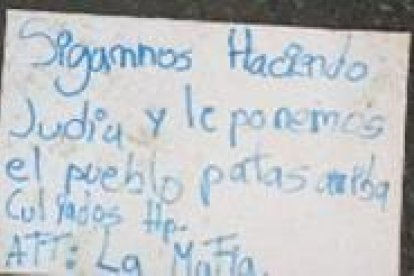 Sigamnos Haciendo
Judia y le ponemos
el pueblo patas arriba
Culiados Hp.
ATT: La Mafia.